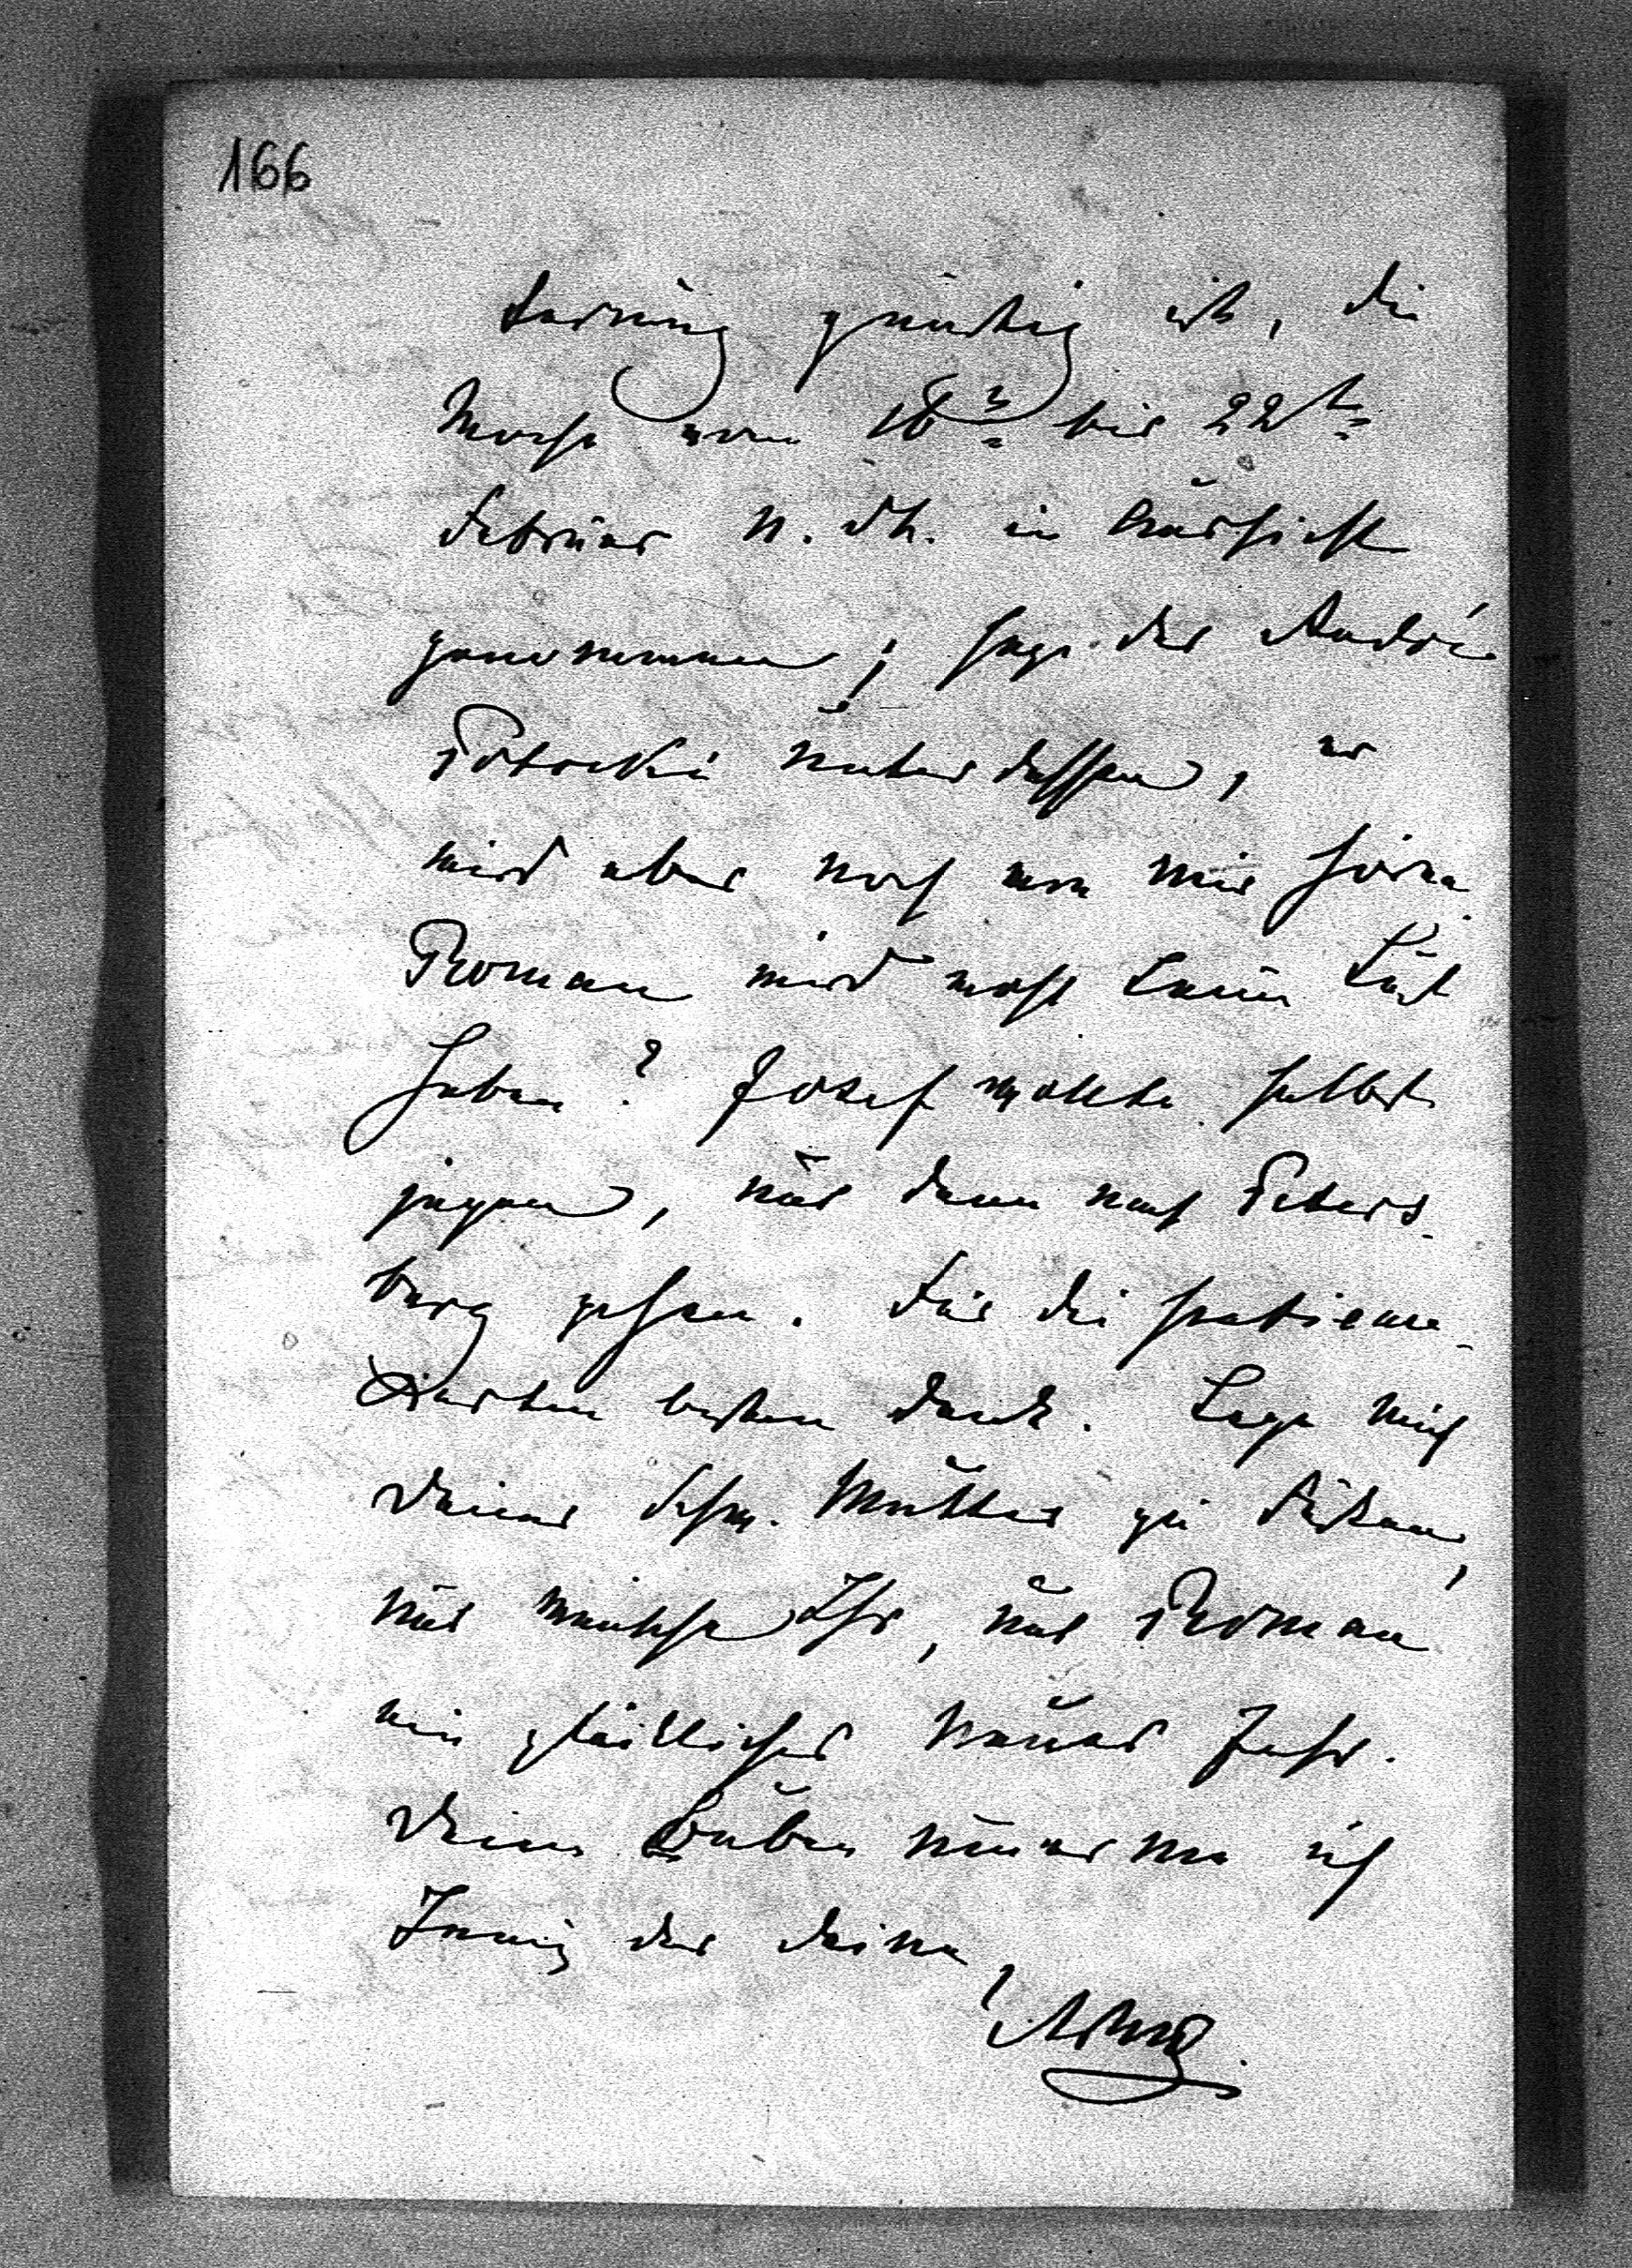 166
terung günstig ist, die
Woche vom 16n bis 22ten
Februar n. St. in Aussicht
genommen; sage das André
Potocki unterdessen, er
wird aber noch von mir hören.
Roman wird wohl kaum Lust
haben? Josef wollte selbst
jagen, und dann nach Peters-
burg gehen. Für die
Karten besten Dank. Lege mich
Deiner Schw. Mutter zu Füßen,
und wünsche Ihr, und Roman
ein glückliches neues Jahr.
Deine Buben umarme ich
Innig der Deine